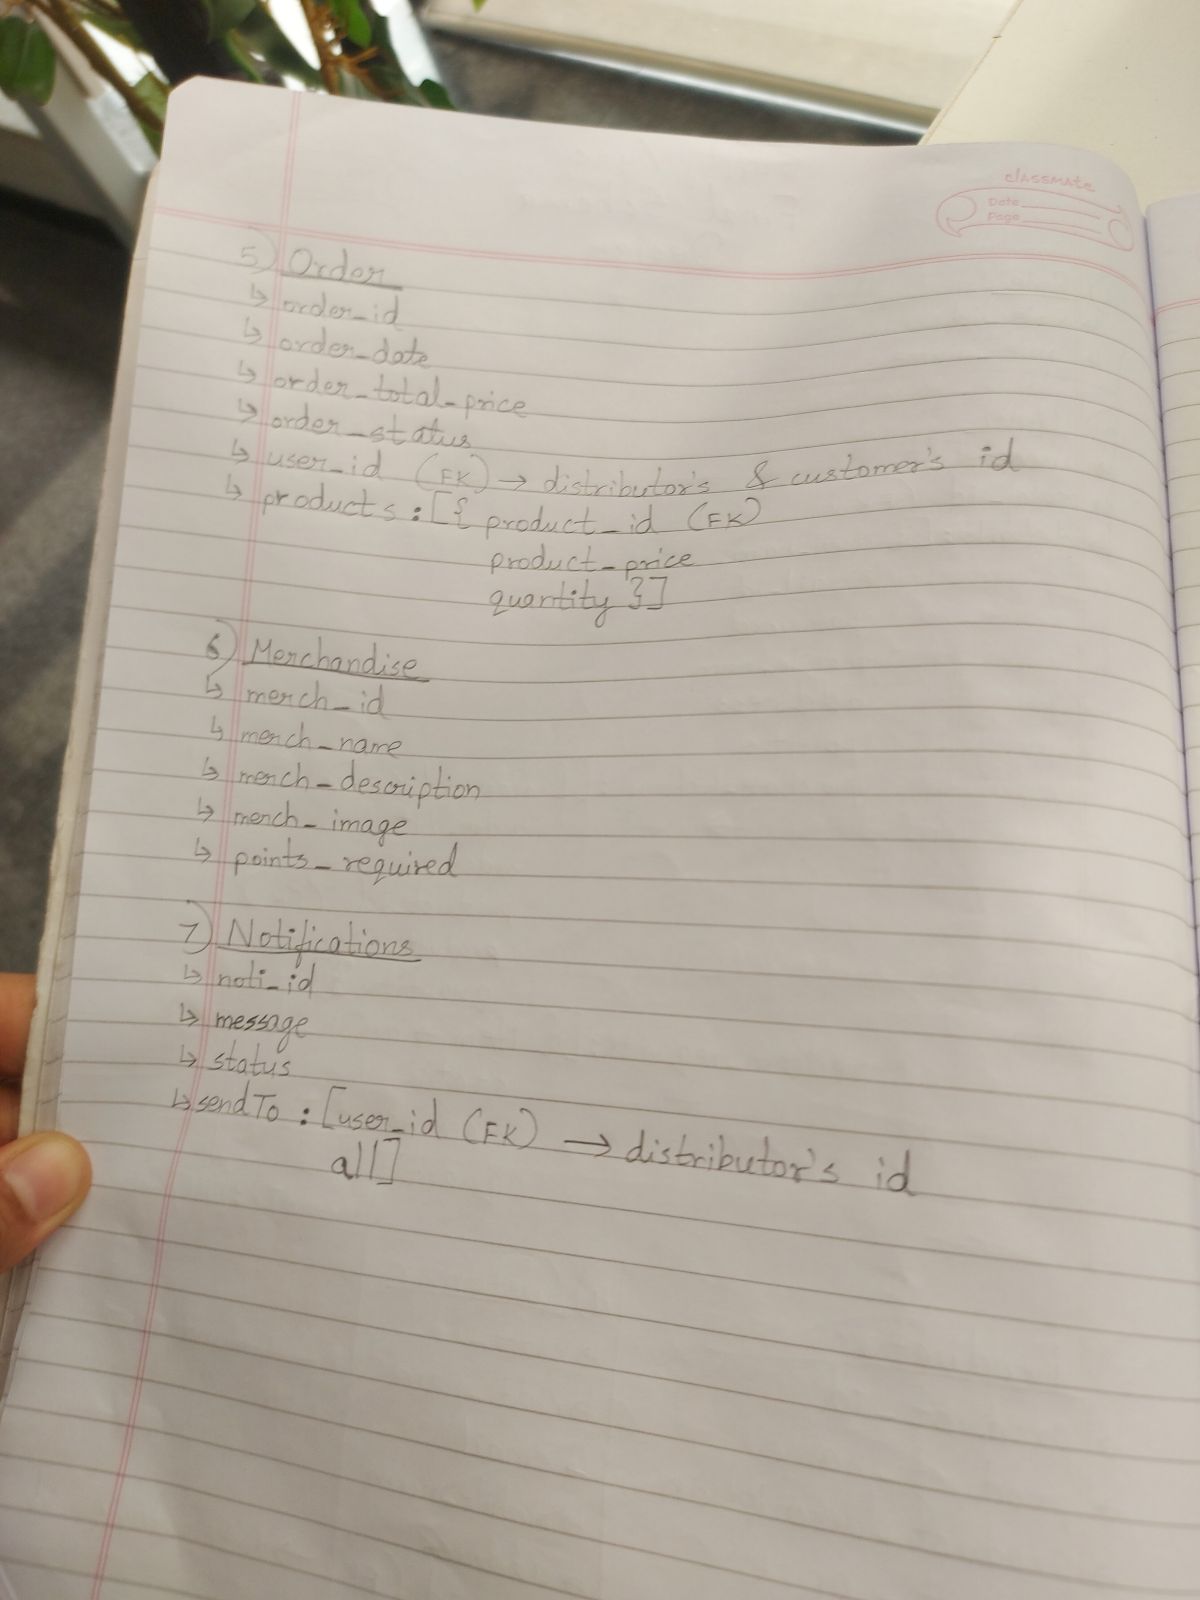 classmate
Date
Page
5) Order
↳ order_id
↳ order_date
↳ order_total_price
↳ order_status
↳ user_id (FK) → distributor's & customer's id
↳ products : [{ product_id (FK)
product_price
quantity }]
6) Merchandise
↳ merch_id
↳ merch_name
↳ merch_description
↳ merch_image
↳ points_required
7) Notifications
↳ noti_id
↳ message
↳ status
↳ sendTo : [user_id (FK) → distributor's id
all]